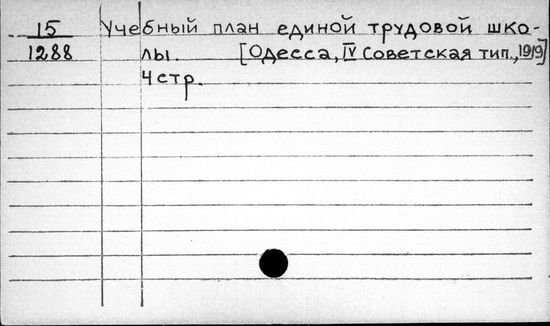 15 Учебный план единой трудовой шко-
1288 лы. [Одесса, IV Советская тип., 1919]
4 стр.